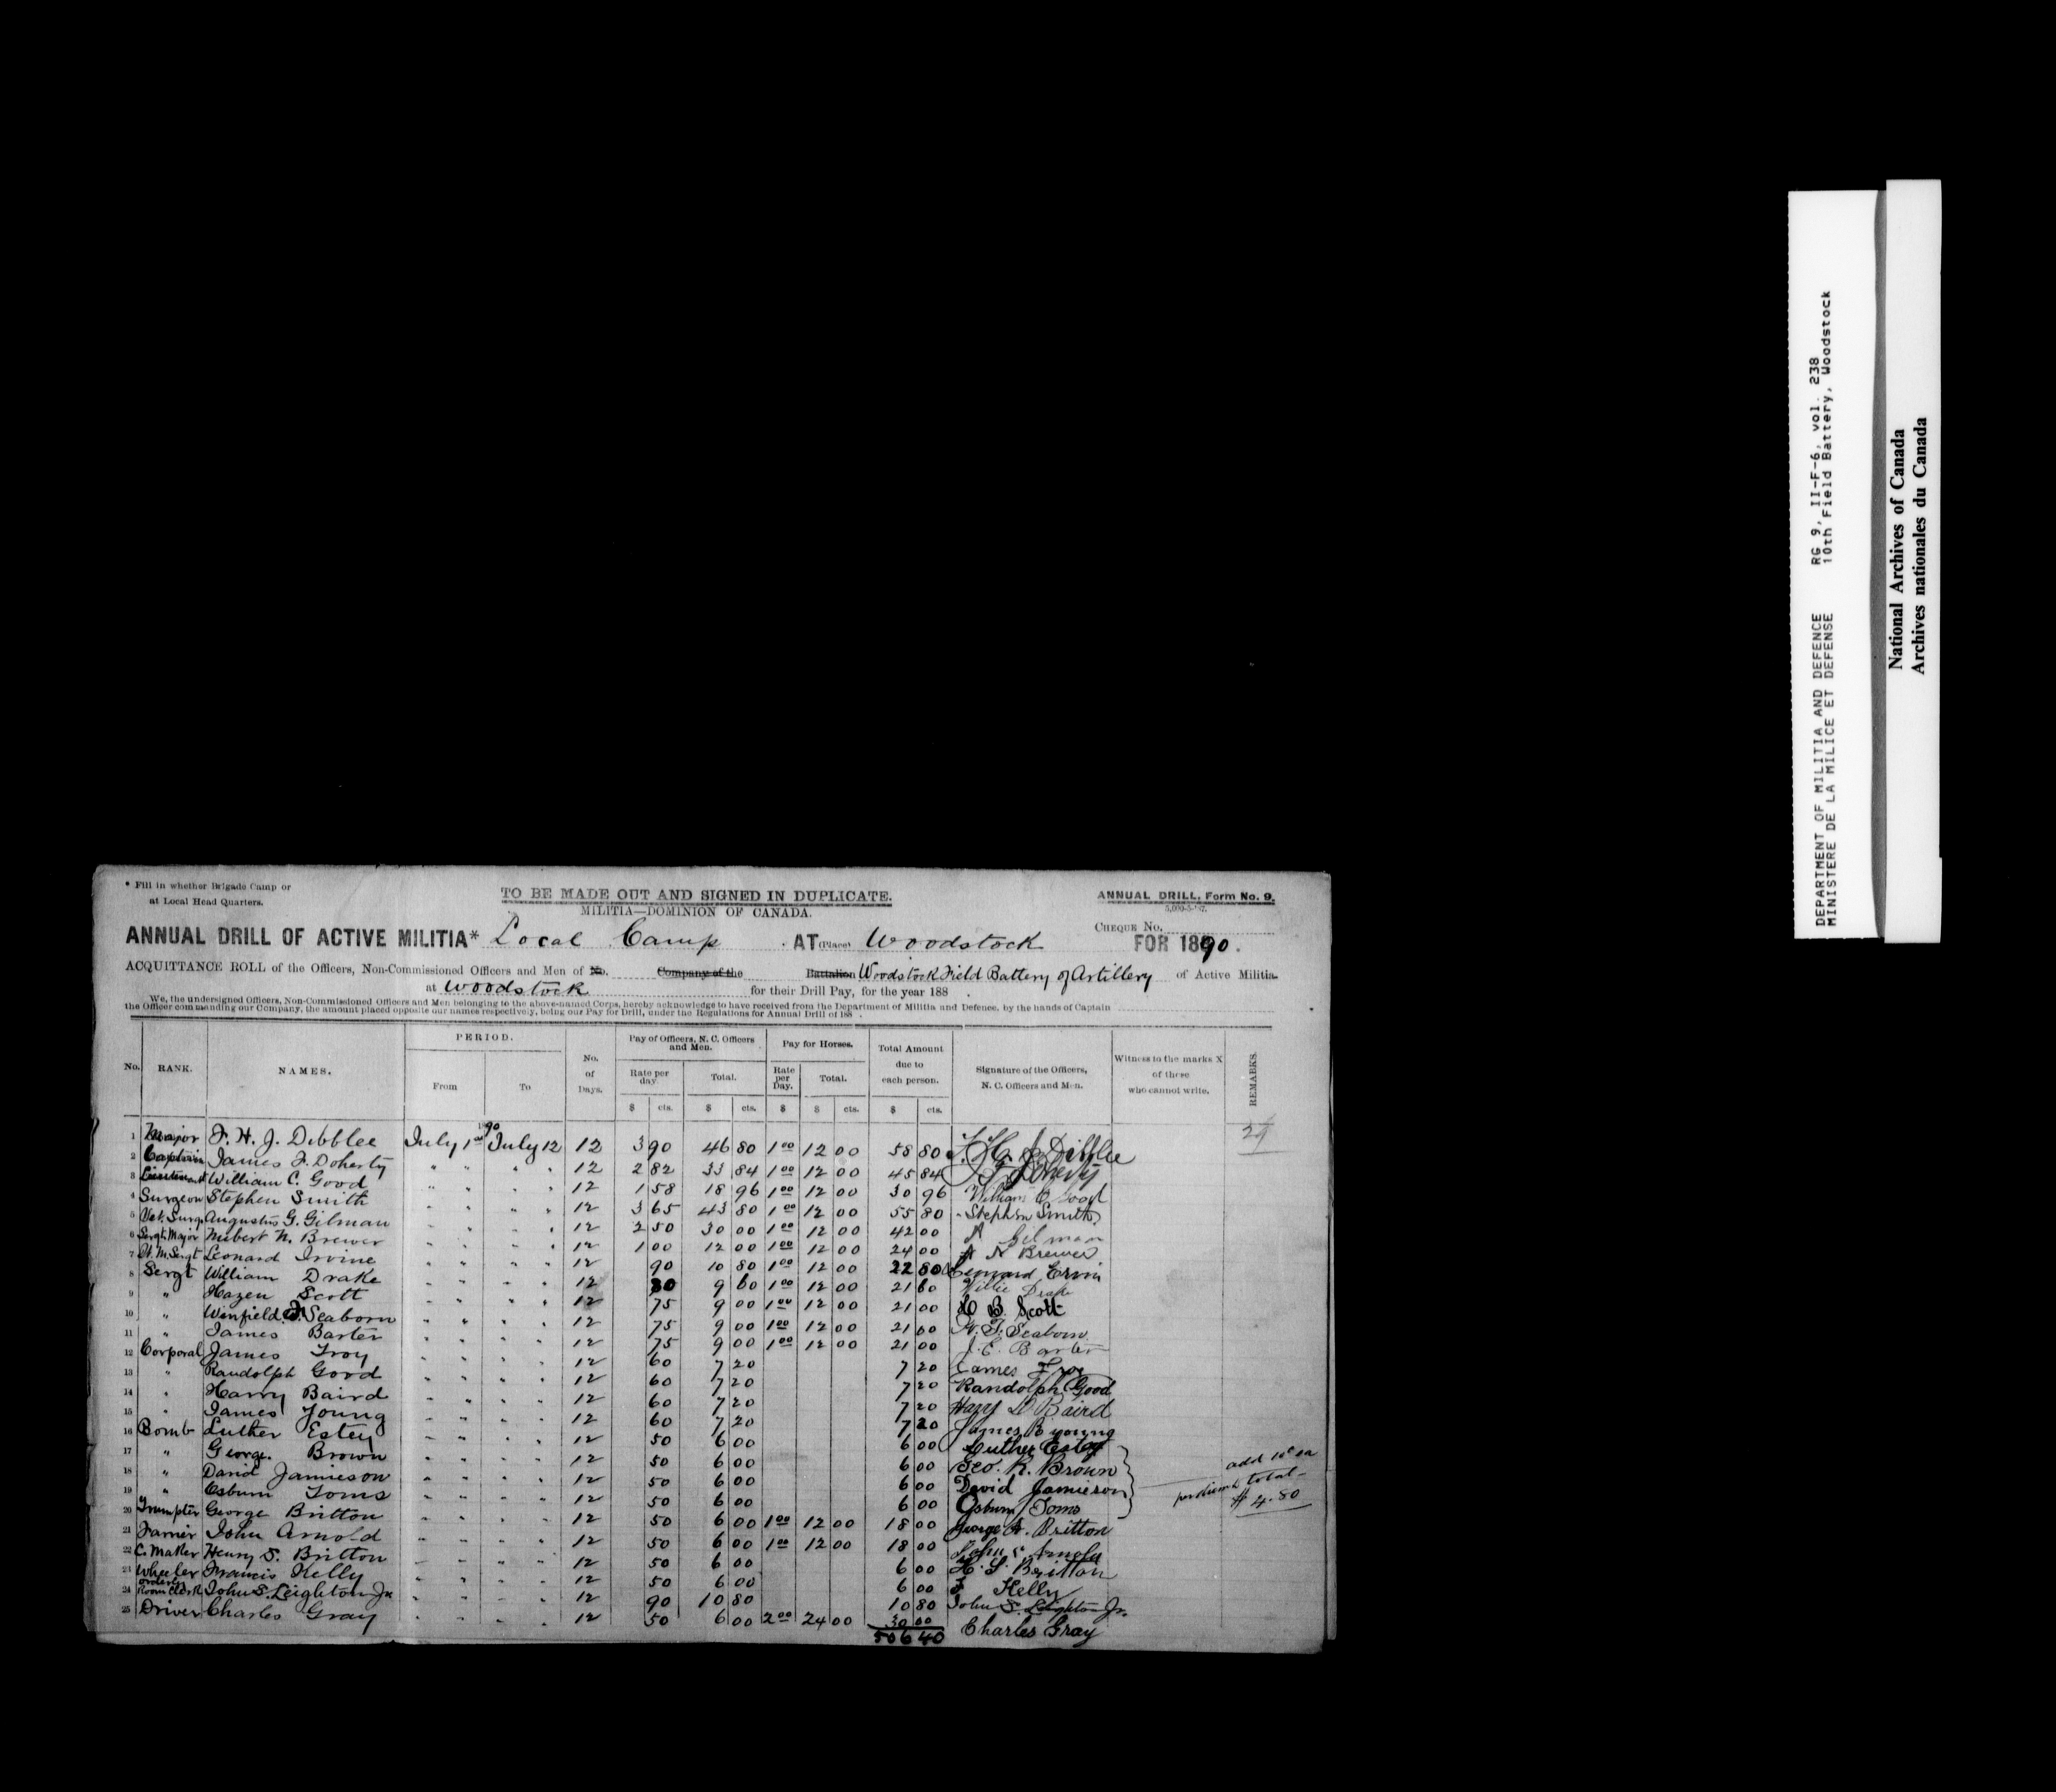 * Fill in whether Brigade Camp or
at Local Head Quarters.
TO BE MADE OUT AND SIGNED IN DUPLICATE.
MILITIA—DOMINION OF CANADA.
ANNUAL DRILL, Form No. 9.
CHEQUE No.
ANNUAL DRILL OF ACTIVE MILITIA* Local Camp AT (Place) Woodstock FOR 1890.
ACQUITTANCE ROLL of the Officers, Non-Commissioned Officers and Men of No. Company of the Battalion Woodstock Field Battery of Artillery of Active Militia
at Woodstock for their Drill Pay, for the year 188 .
We, the undersigned Officers, Non-Commissioned Officers and Men belonging to the above-named Corps, hereby acknowledge to have received from the Department of Militia and Defence, by the hands of Captain
the Officer commanding our Company, the amount placed opposite our names respectively, being our Pay for Drill, under the Regulations for Annual Drill of 188 .
No. RANK. NAMES. PERIOD. From To No. of Days. Pay of Officers, N. C. Officers and Men. Rate per day. Total. Pay for Horses. Rate per Day. Total. Total Amount due to each person. Signature of the Officers, N. C. Officers and Men. Witness to the marks X of those who cannot write. REMARKS.
$ cts. $ cts. $ $ cts. $ cts.
1890
1 Major F. H. J. Dibblee July 1st July 12 12 3 90 46 80 1 00 12 00 58 80 F. H. J. Dibblee
2 Captain James F. Doherty " " " " 12 2 82 33 84 1 00 12 00 45 84 J F Doherty
3 Lieutenant William C. Good " " " " 12 1 58 18 96 1 00 12 00 30 96 William C Good
4 Surgeon Stephen Smith " " " " 12 3 65 43 80 1 00 12 00 55 80 Stephen Smith
5 Vet. Surg. Augustus G. Gilman " " " " 12 2 50 30 00 1 00 12 00 42 00 A Gilman
6 Sergt. Major Hubert N. Brewer " " " " 12 1 00 12 00 1 00 12 00 24 00 H N Brewer
7 Q. M. Sergt Leonard Irvine " " " " 12 90 10 80 1 00 12 00 22 80 Leonard Ervin
8 Sergt William Drake " " " " 12 80 9 60 1 00 12 00 21 60 Willie Drake
9 " Hazen Scott " " " " 12 75 9 00 1 00 12 00 21 00 H B. Scott
10 " Winfield F. Seaborn " " " " 12 75 9 00 1 00 12 00 21 00 W. F. Seaborn
11 " James Barter " " " " 12 75 9 00 1 00 12 00 21 00 J. E. Barter
12 Corporal James Troy " " " " 12 60 7 20 7 20 James Troy
13 " Randolph Good " " " " 12 60 7 20 7 20 Randolph Good
14 " Harry Baird " " " " 12 60 7 20 7 20 Harry D Baird
15 " James Young " " " " 12 60 7 20 7 20 James B young
16 Bomb Luther Estey " " " " 12 50 6 00 6 00 Luther Estey
17 " George. Brown " " " " 12 50 6 00 6 00 Geo. R. Brown
18 " David Jamieson " " " " 12 50 6 00 6 00 David Jamieson
19 " Osburn Toms " " " " 12 50 6 00 6 00 Osburn Toms
add 10c ea
per diem total
$ 4.80
20 Trumpter George Britton " " " " 12 50 6 00 1 00 12 00 18 00 George A. Britton
21 Farrier John Arnold " " " " 12 50 6 00 1 00 12 00 18 00 John Arnold
22 C. Maker Henry S. Britton " " " " 12 50 6 00 6 00 H. S. Britton
23 Wheeler Francis Kelly " " " " 12 50 6 00 6 00 F Kelly
24 Orderly Room Clerk John S. Leighton Jr " " " " 12 90 10 80 10 80 John S. Leighton Jr.
25 Driver Charles Gray " " " " 12 50 6 00 2 00 24 00 30 00 Charles Gray
506 40
DEPARTMENT OF MILITIA AND DEFENCE RG 9, II-F-6, vol. 238
MINISTERE DE LA MILICE ET DEFENSE 10th Field Battery, Woodstock
National Archives of Canada
Archives nationales du Canada